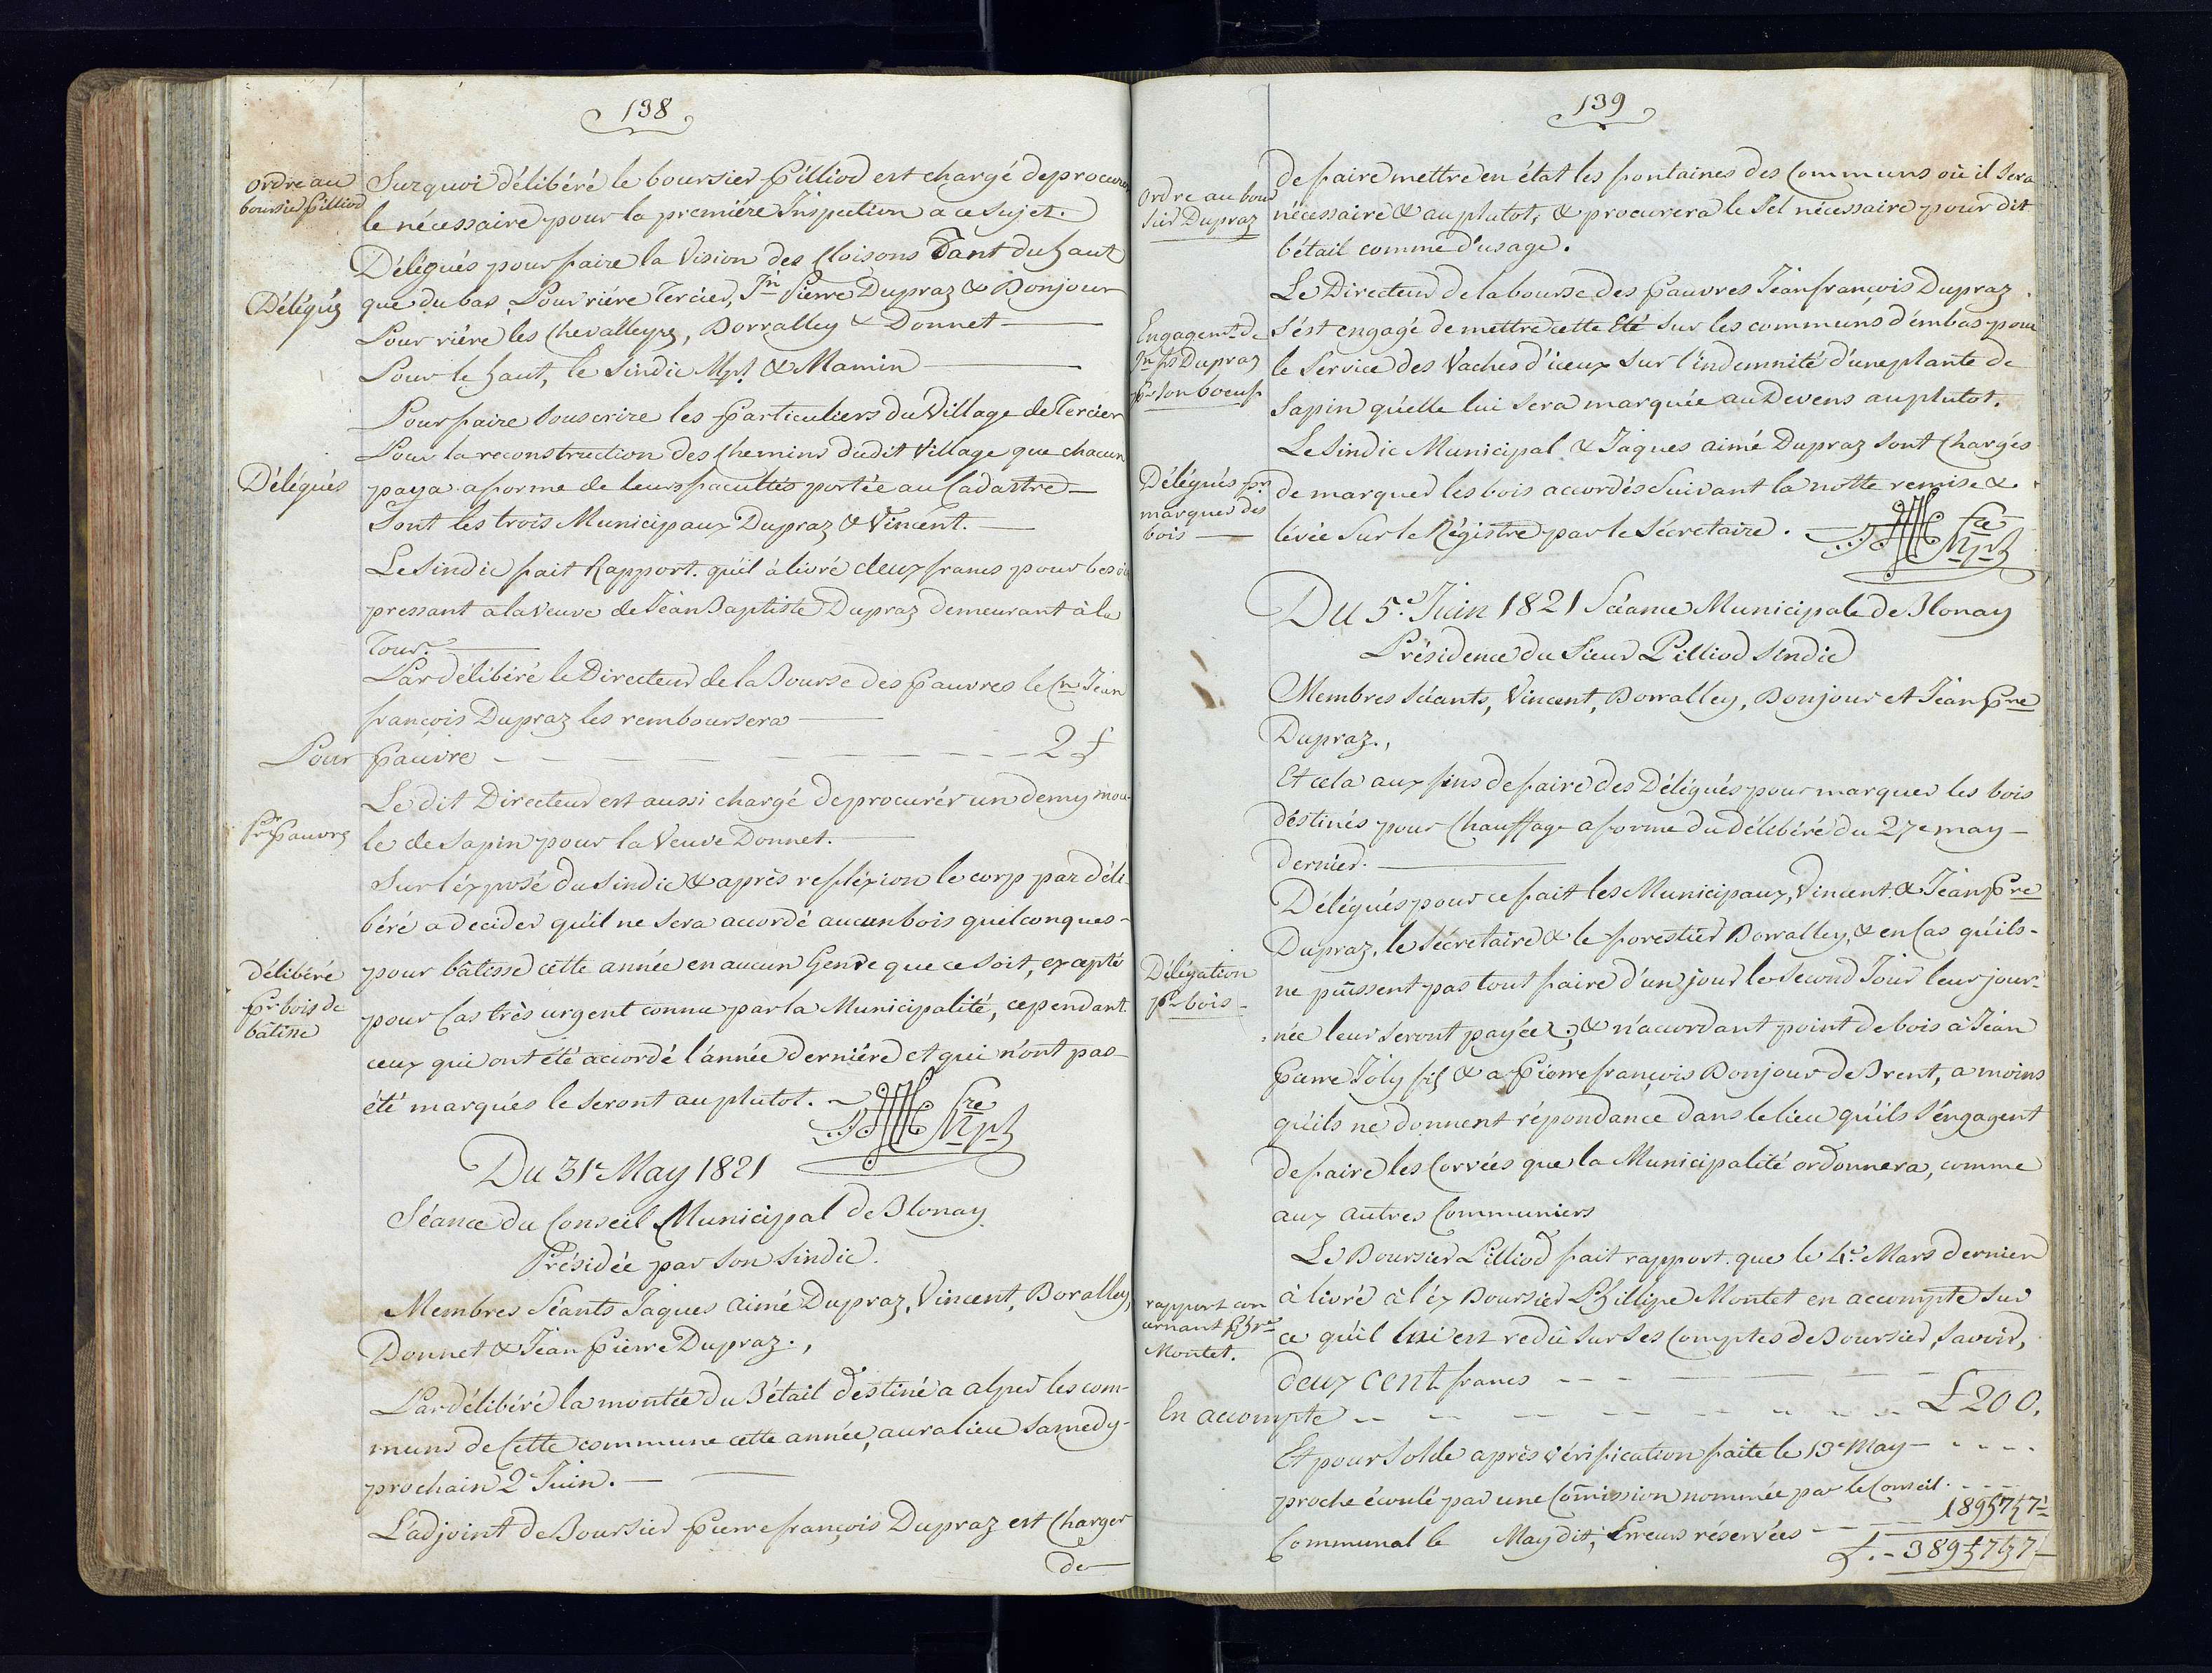 138
ordre au
boursier Pilliod
Surquoi délibéré le boursier Pilliod est chargé de procurer
le nécessaire pour la premiére Inspection a ce sujet.
Délégués pour faire la Vision des Cloisons Tant du haut
Délégués
que du bas, Pour riére Tercier, Jn Pierre Dupraz & Bonjour
Pour riére les Chevalleyres, Borralley & Donnet —
Pour le haut, le Sindic Mpl & Mamin —
Pour faire souscrire les Particuliers du Village de Tercier
Pour la reconstruction des Chemins dudit Village que chacun
Délégués
paya a forme de leurs facultés portée au Cadastre —
Sont les trois Municipaux Dupraz & Vincent. —
Le Sindic fait Rapport. qu'il à livré deux francs pour besoin
pressant a la Veuve de Jéan Baptiste Dupraz demeurant à la
Tour. —
Par délibéré le Directeur de la Bourse des Pauvres le Cn Jéan
françois Dupraz les remboursera —
Pour Pauvre — — — — — — — 2 £
Le dit Directeur est aussi chargé de procurér un demy mou-
Pr Pauvres
le de Sapin pour la Veuve Donnet. —
Sur l'éxposé du Sindic & après refléxion le corp par déli-
béré a decider qu'il ne sera accordé aucun bois quelconques -
délibéré
Pr bois de
bâtisse
pour bâtisse cette année en aucun Genre que ce soit, excepté
pour Cas très urgent connu par la Municipalité, cependant
ceux qui ont été accordé l'année derniére et qui n'ont pas
été marqués le seront au plutot. —
Sre Mpl
Du 31e May 1821
Séance du Conseil Municipal de Blonay
Présidée par son Sindic.
Membres Séants Jaques aimé Dupraz, Vincent, Boralley,
Donnet & Jéan Pierre Dupraz.,
Par délibéré la montée du Bétail déstiné a alper les com-
muns de Cette commune cette année, aura lieu Samedy
prochain 2e Juin. —
L'adjoint de Boursier Pierre françois Dupraz est Charger
de
139
Ordre au bour
sier Dupraz
de faire mettre en état les fontaines des Communs où il sera
nécessaire & au plutot, & procurera le Sel nécessaire pour dit
bétail comme d'usage.
Le Directeur de la bourse des Pauvres Jéan françois Dupraz
Engagemt de
Jn fs Dupraz
Pr son boeuf
s'ést engagé de mettre cette Eté sur les communs d'émbas pour
le Service des Vaches d'iceux sur l'indemnité d'une plante de
Sapin qu'elle lui sera marquée au Devens au plutot.
Le Sindic Municipal & Jaques aimé Dupraz sont Chargés
Délégués pr
marquer des
bois —
de marquer les bois accordés Suivant la notte remise &
lévée sur le Régistre par le Sécretaire. —
Sre Mpl
Du 5e Juin 1821 Séance Municipale de Blonay
Présidence du Sieur Pilliod Sindic
Membres Séants, Vincent, Borralley, Bonjour et Jéan Pre
Dupraz.,
Et cela aux fins de faire des Délégués pour marquer les bois
déstinés pour Chauffage a forme du délibéré du 27e may —
dernier. —
Délégués pour ce fait les Municipaux, Vincent & Jéan Pre
Dupraz, le Sécretaire & le forestier Borralley, & en Cas qu'ils -
Délégation
pr bois —
ne puissent pas tout faire d'un jour le second Jour leur jour-
née leur seront payées; & n'accordant point de bois à Jéan
Pierre Joly fils & a Pierre françois Bonjour de Brent, a moins
qu'ils ne donnent répondance dans le lieu qu'ils s'éngagent
de faire les Corvées que la Municipalité ordonnera, comme
aux autres Communiers
Le Boursier Pilliod fait rapport. que le 4e Mars dernier
rapport con
cernant Phre
Montet.
à livré à l'éx Boursier Phillipe Montet en accompte sur
ce qu'il lui est redû sur ses Comptes de Boursier, savoir,
deux cent francs — — — — —
En accompte — — — — — £ 200.
Et pour solde après vérification faite le 13e May — . . . .
proche écoulé par une Comission nommée par le Conseil. . . . .
Communal le May dit, Erreurs réservées — — 189 £ 7 ß 7
£. - 389 £ 7 ß 7